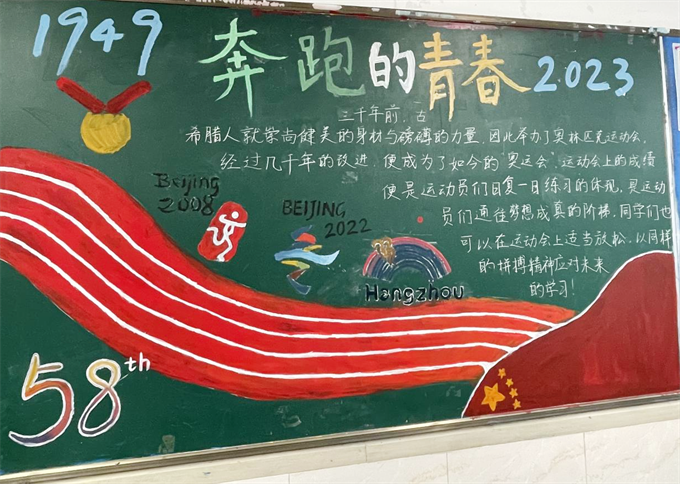 1949
奔跑的青春
2023
三千年前,古
希腊人就崇尚健美的身材与磅礴的力量,因此举办了奥林匹克运动会,
经过几千年的改进,便成为了如今的"奥运会",运动会上的成绩
便是运动员们日复一日练习的体现,是运动
员们通往梦想成真的阶梯,同学们也
可以在运动会上适当放松,以同样
的拼搏精神应对未来
的学习!
Beijing
2008
BEIJING
2022
Hangzhou
58th